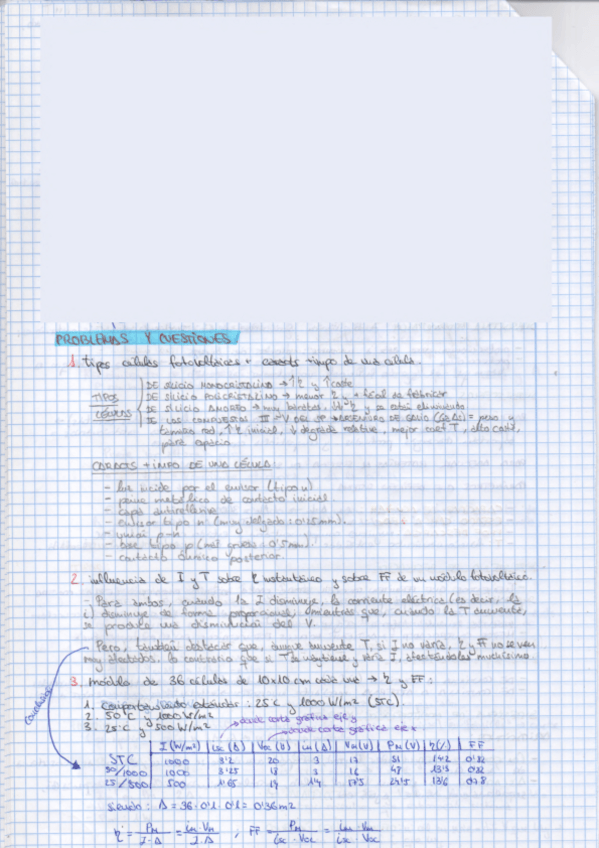 PROBLEMAS Y CUESTIONES
1. Tipos células fotovoltaicas + caracts +impo de una célula.
TIPOS CÉLULAS
DE SILICIO MONOCRISTALINO → ↑η y ↑coste
DE SILICIO POLICRISTALINO → menor η y + fácil de fabricar
DE SILICIO AMORFO → muy baratas, η y se está eliminando
DE LOS COMPUESTOS III-V DEL SP → ARSENIURO DE GALIO (GaAs) = peso y
tamaño red, ↑η inicial, ↓ degrada relativa, mejor T, alto coste,
para espacio
CARACTS +IMPO DE UNA CÉLULA
- luz incide por el emisor (tipo n)
- peine metálico de contacto inicial
- capa antireflexiva
- emisor tipo n (muy delgado:
- unión p-n
- base tipo p
- contacto óhmico posterior
2. Influencia de I y T sobre η instantáneo y sobre FF de un módulo fotovoltaico.
- Para ambos, cuando la I disminuye, la corriente eléctrica (es decir, la
i) disminuye de forma proporcional, mientras que, cuando la T aumenta,
se produce una disminución del V.
- Pero, también destacar que, aunque aumente T, si I no varía, η y FF no se ven
muy afectados, lo contrario que si T se mantiene y varía I, afectándoles muchísimo.
3. módulo de 36 células de 10x10 cm cada una → η y FF:
1. Comportamiento estándar: 25°C y 1000 W/m2 (STC).
2. 50°C y 1000 W/m2
3. 25°C y 500 W/m2
→ donde corta gráfica eje y
→ donde corta gráfica eje x
I (W/m²) | isc (A) | Voc (V) | im (A) | VM (V) | PM (V) | η (%) | FF
STC 1000 3'2 20 3 17 51 14'2 0'82
50/1000 1000 3'25 18 3 16 48 13'3 0'82
25/500 500 1'65 19 1'4 17'5 24'5 13'6 0'78
siendo: A = 36·0'1·0'1 = 0'36 m2
η = PM / I·A = im·VM / I·A , FF = PM / isc·Voc = im·VM / isc·Voc